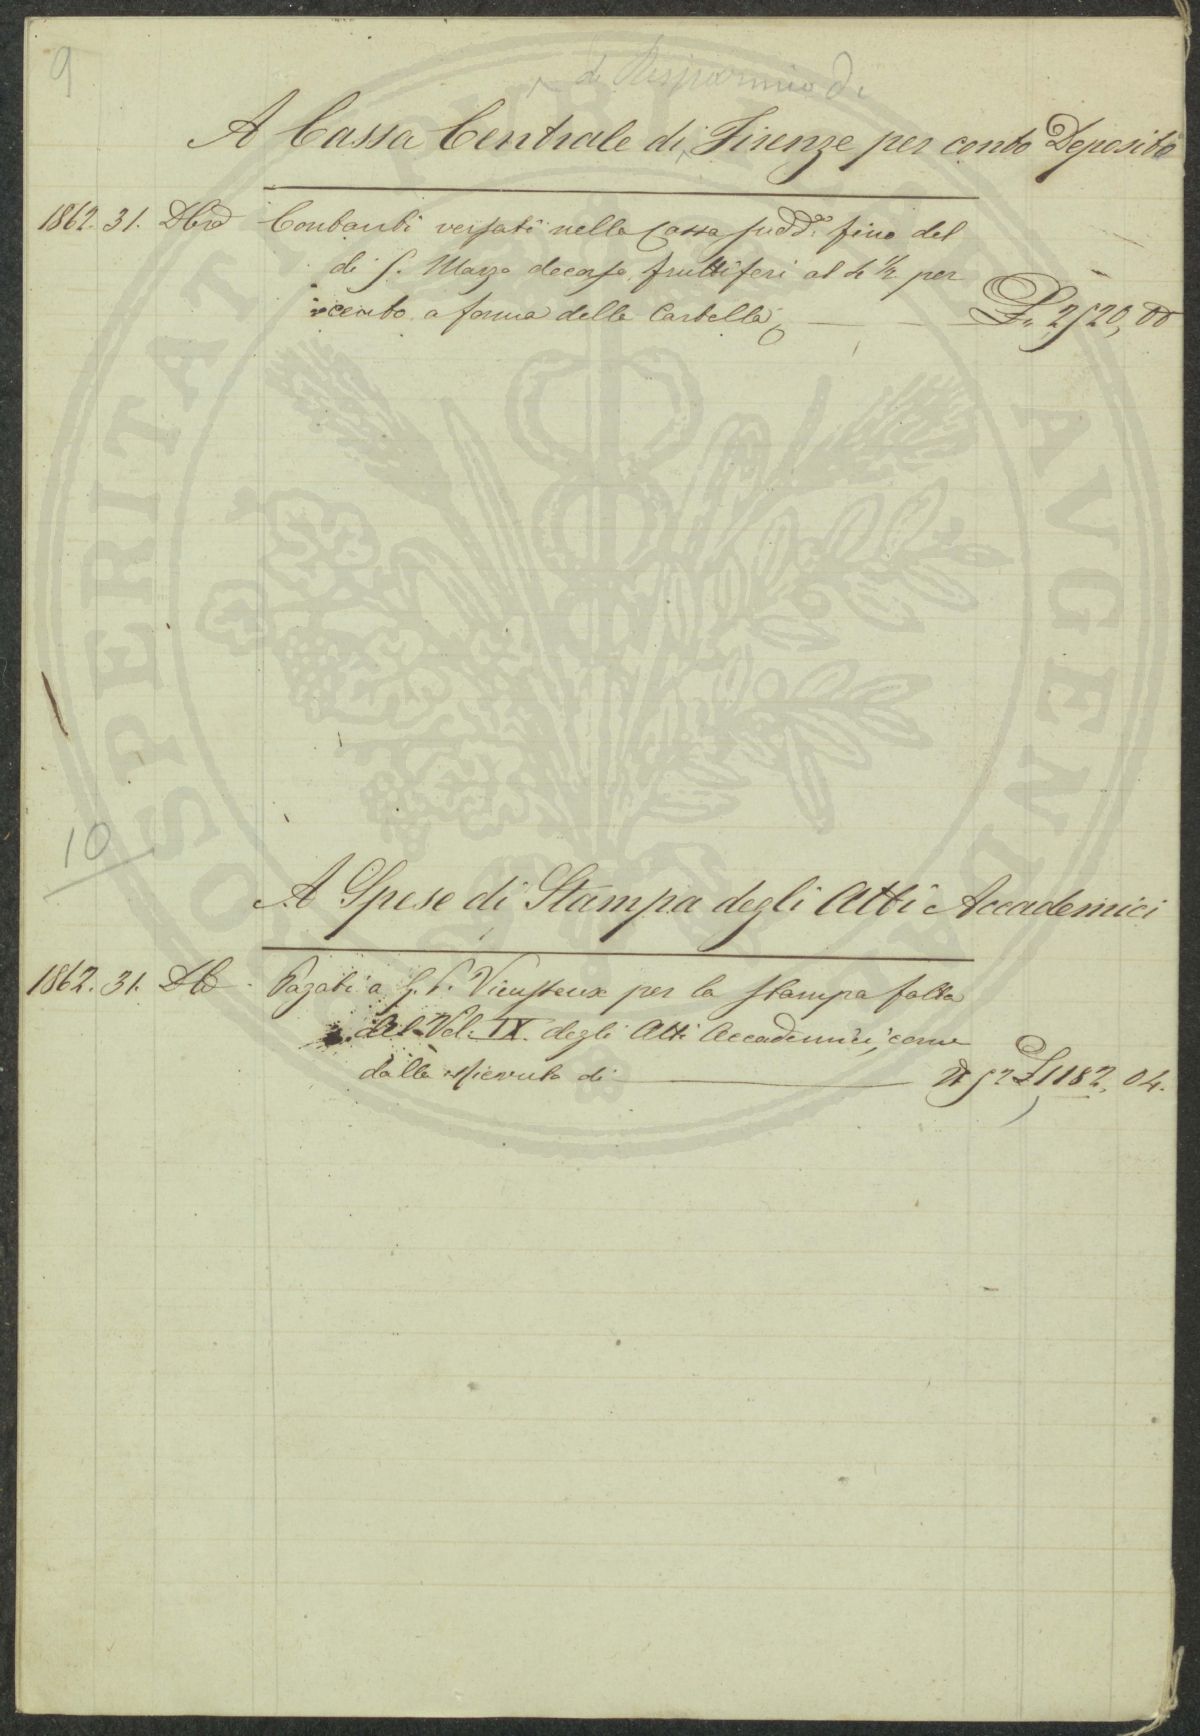 9
di Risparmio di
A Cassa Centrale di Firenze per conto Deposito
1862. 31. Dbre Contanti versati nella Cassa sudd.a fino del
di 5. Marzo decorso, fruttiferi al 4 1/2 per
cento a forma della Cartella, £. 2520, 00
10
A Spese di Stampa degli Atti Accademici
1862. 31. Dbe Pagati a G. P. Vieusseux per la stampa fatta
del Vol. IX. degli Atti Accademici, come
dalla ricevuta di N 52 £ 1182, 04.
PROSPERITATI AUGENDAE